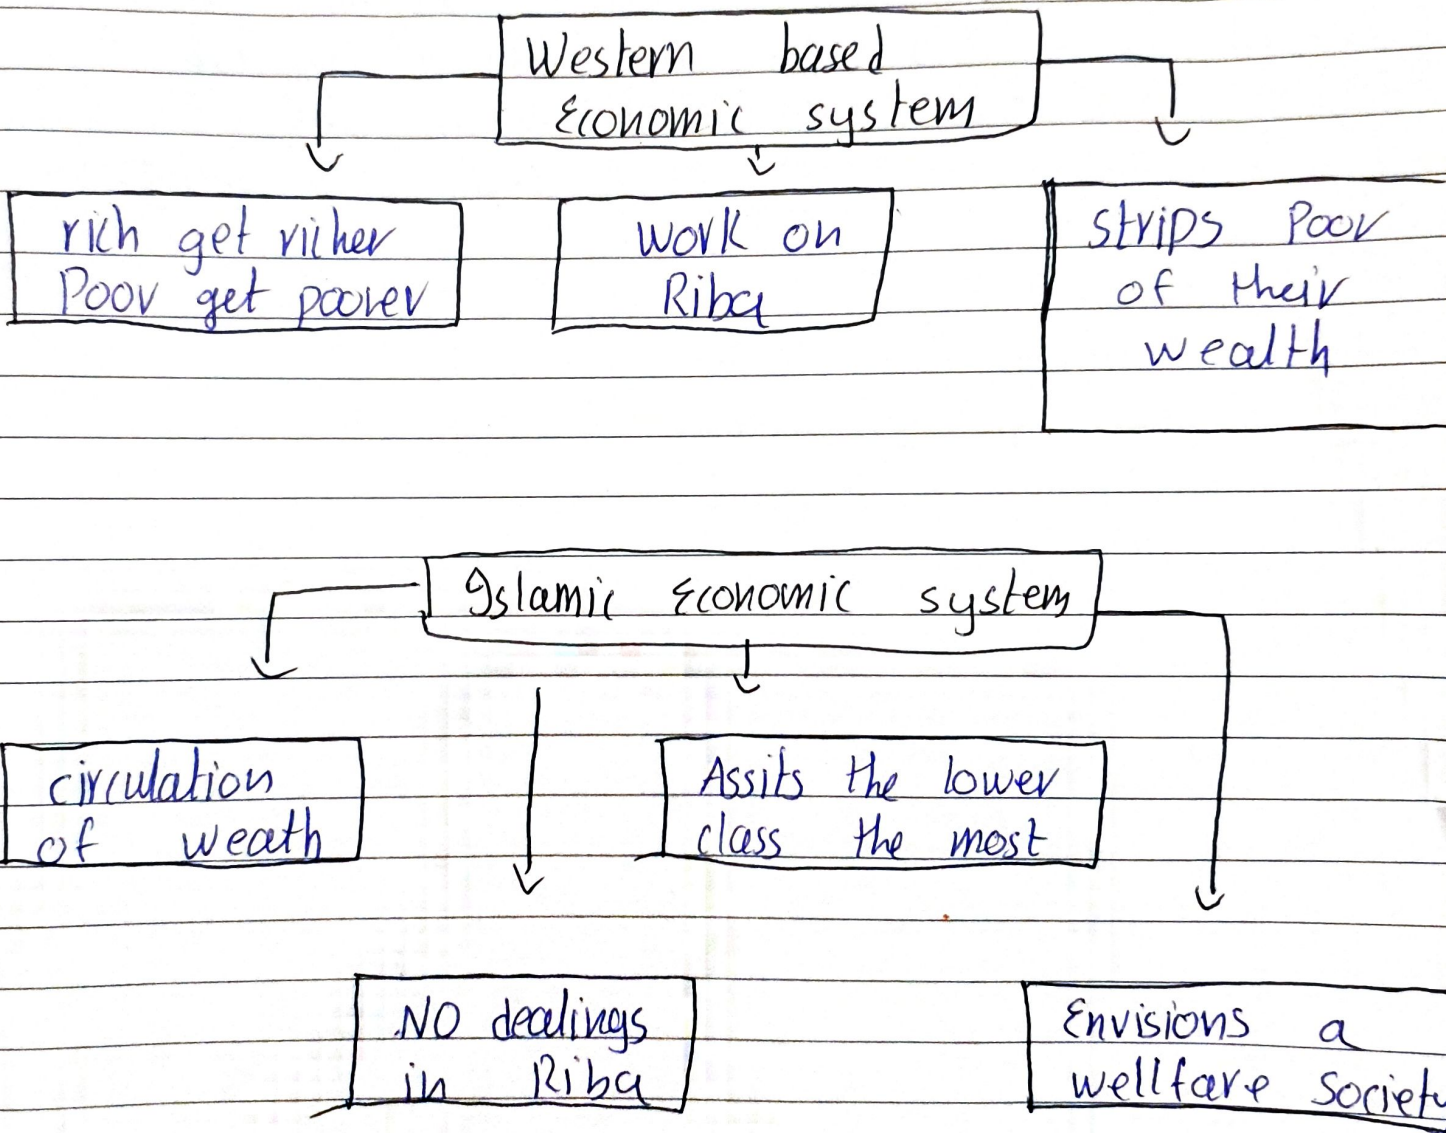 Western based
Economic system
rich get richer
Poor get poorer
work on
Riba
strips Poor
of their
wealth
Islamic Economic system
circulation
of weath
Assits the lower
class the most
NO dealings
in Riba
Envisions a
wellfare society